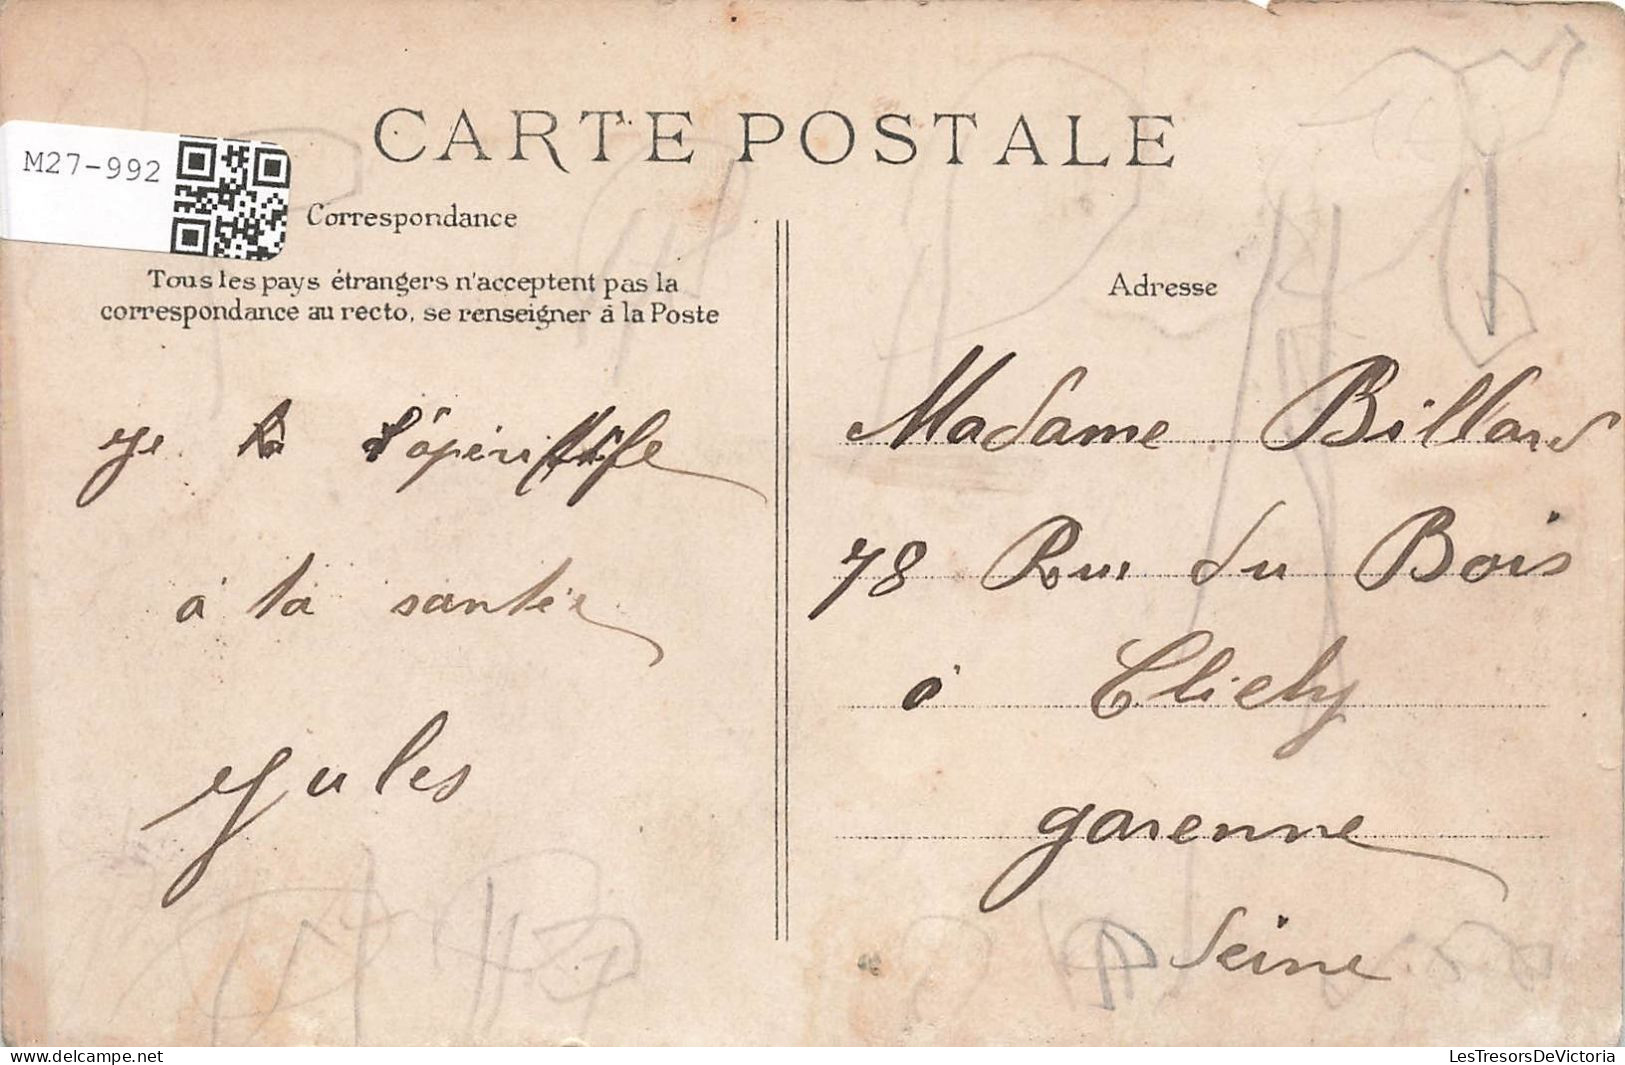 CARTE POSTALE
M27-992
Correspondance
Tous les pays étrangers n'acceptent pas la
correspondance au recto, se renseigner à la Poste
Adresse
je
à ta santée
Jules
Madame Billard
78 Rue du Bois
à Clichy
garenne
Seine
delcampe.net
LesTresorsDeVictoria